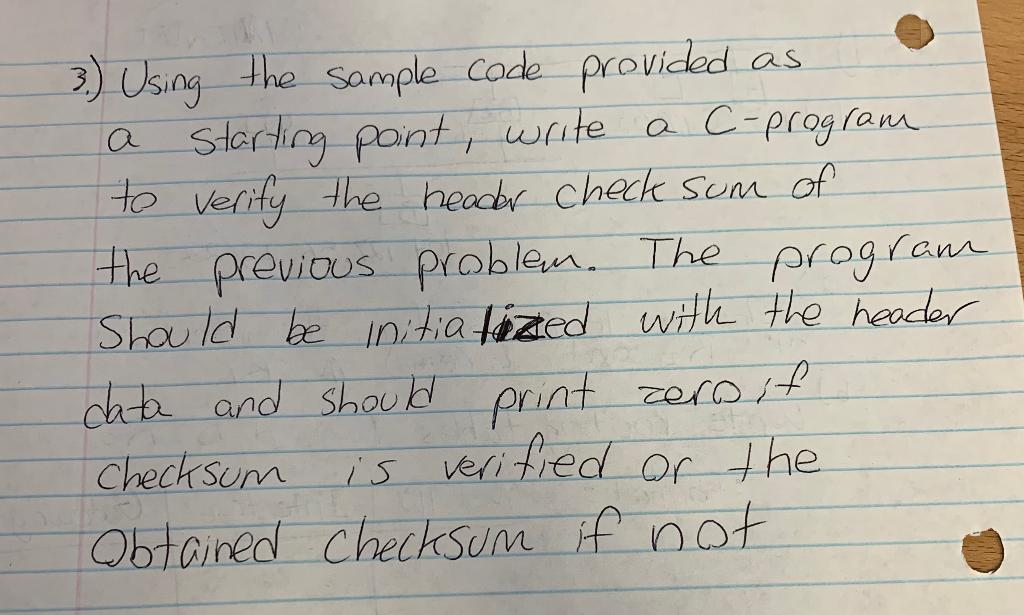 3.) Using the sample code provided as
a starting point, write a C-program
to verify the header check sum of
the previous problem. The program
Should be initialized with the header
data and should print zero if
checksum is verified or the
Obtained checksum if not